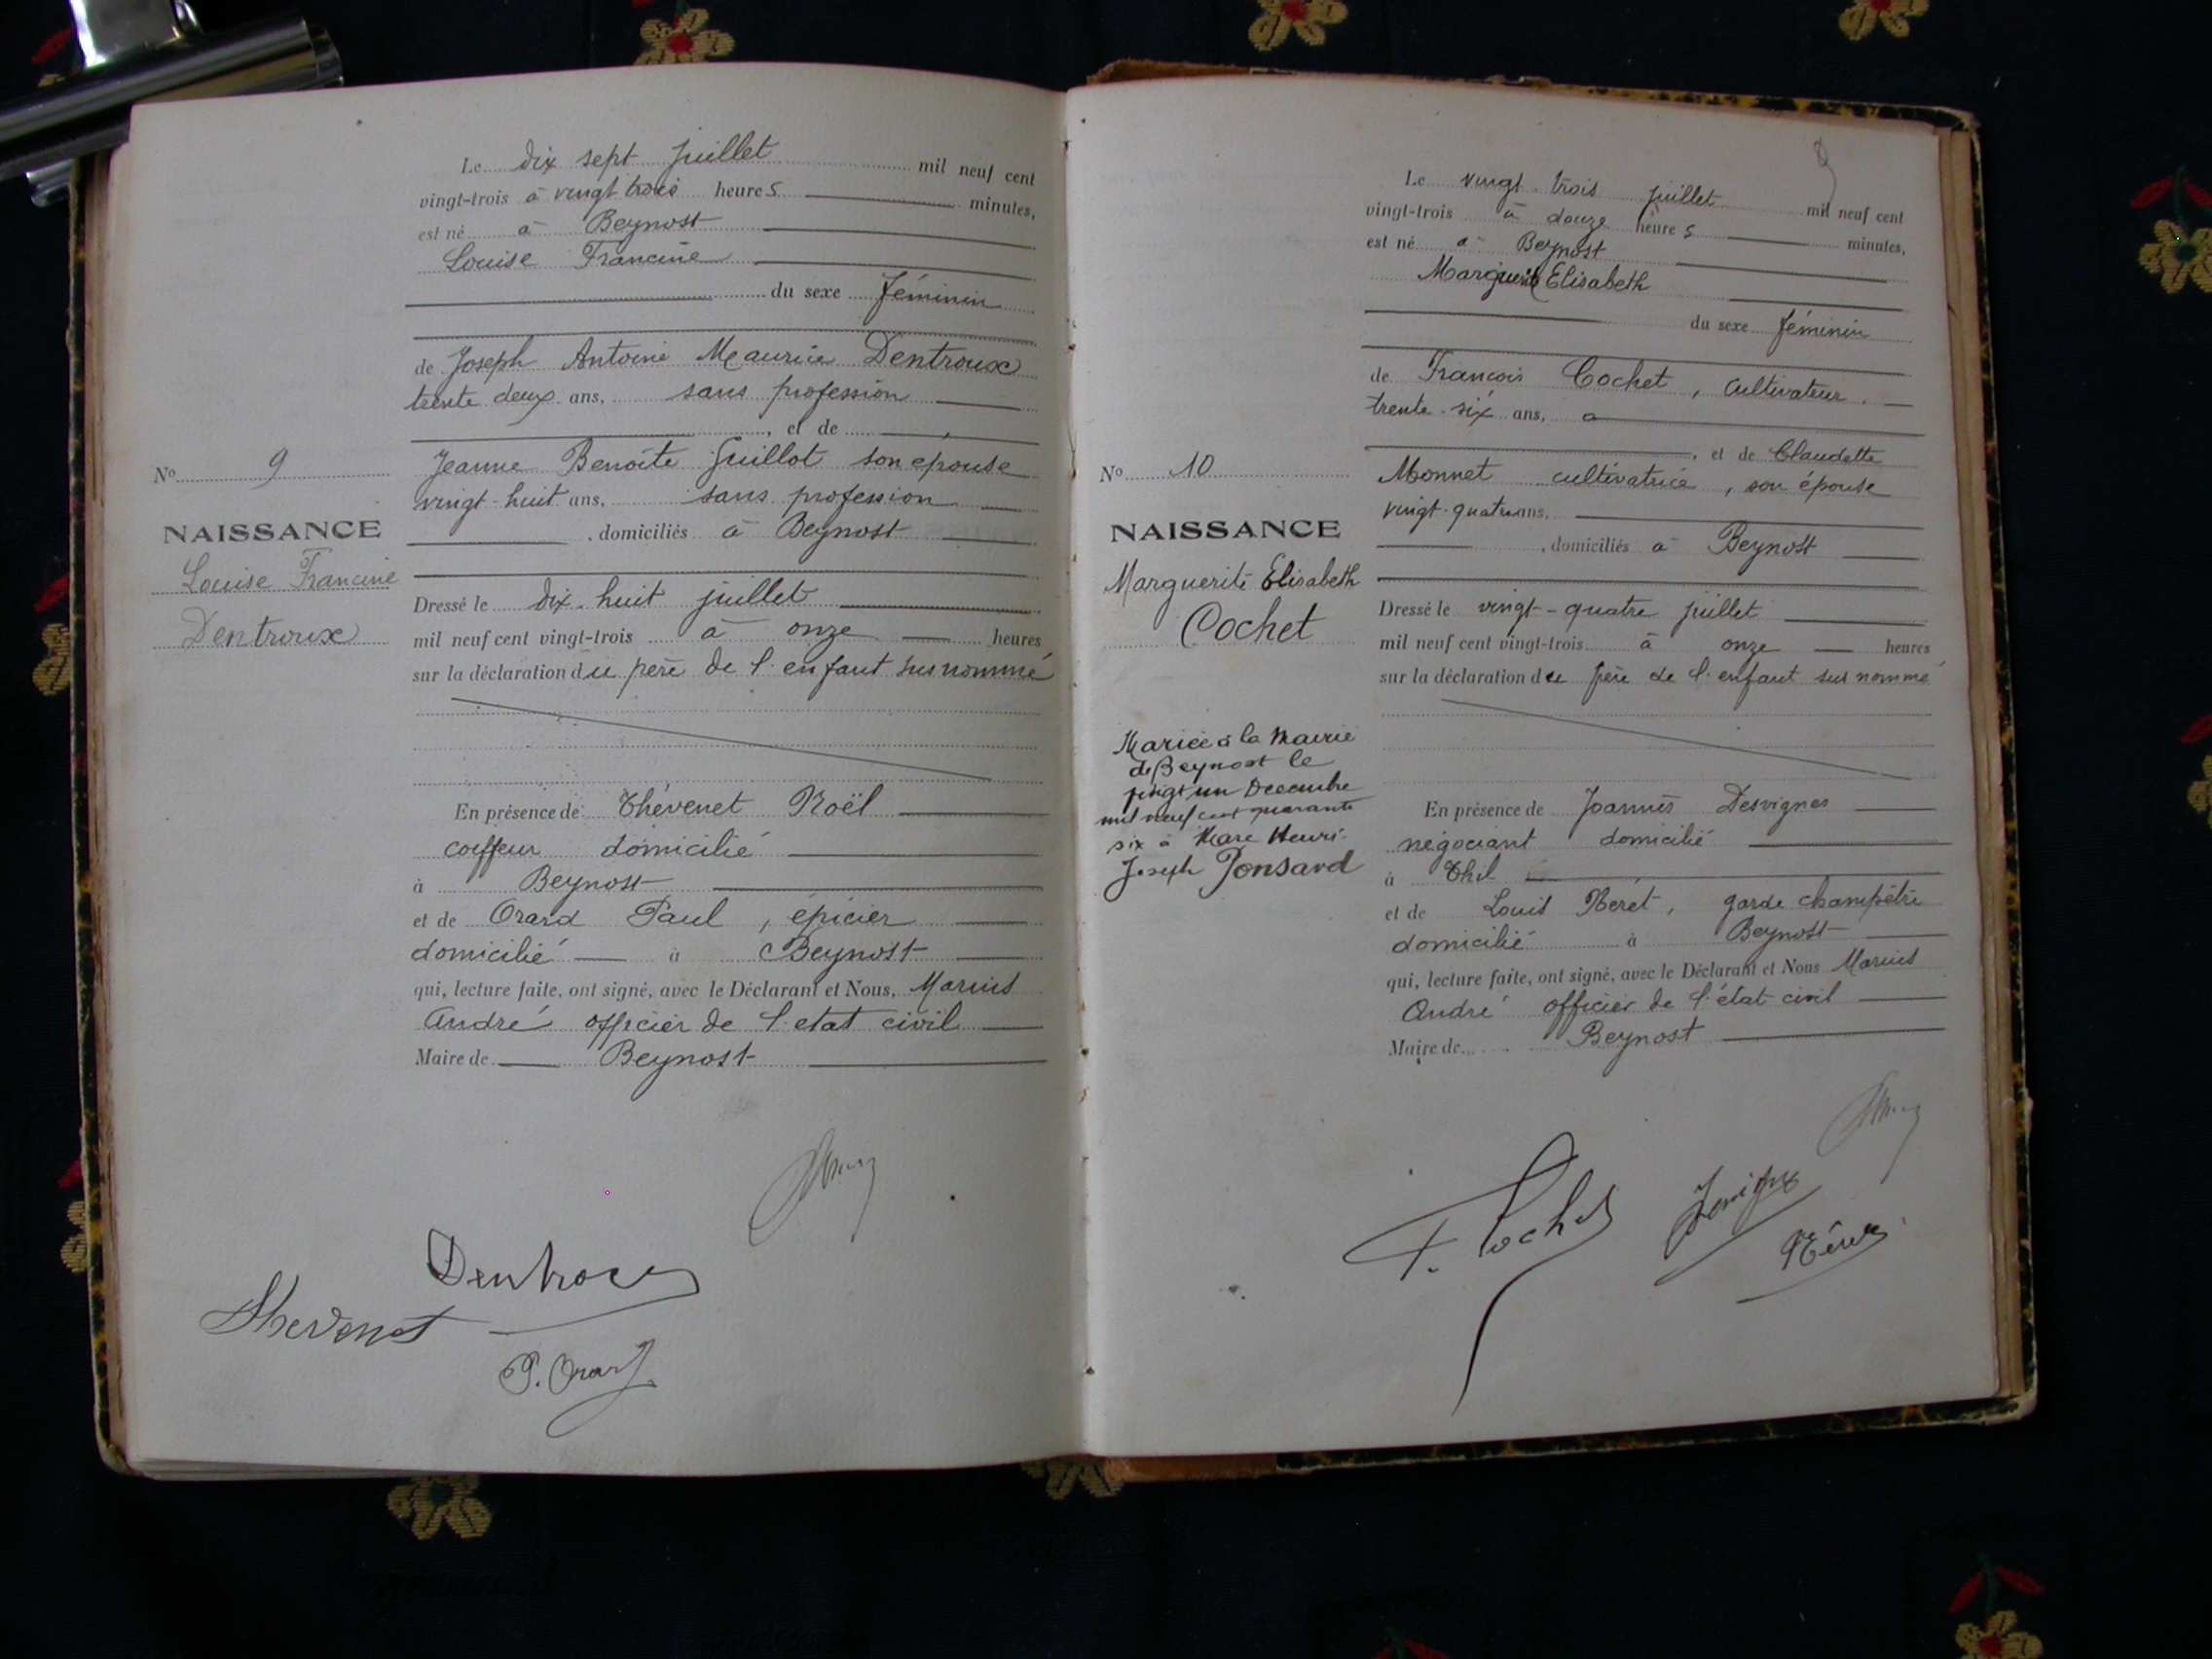 Le dix sept juillet mil neuf cent
vingt-trois à vingt trois heures minutes,
est né à Beynost
Louise Francine
du sexe féminin
de Joseph Antoine Maurice Dentroux
trente deux ans, sans profession
, et de
Jeanne Benoite Guillot son épouse
vingt-huit ans, sans profession
, domiciliés à Beynost
Dressé le dix-huit juillet
mil neuf cent vingt-trois à onze heures
sur la déclaration du père de l'enfant susnommé
En présence de Thévenet Noël
coiffeur domicilié
à Beynost
et de Orard Paul, épicier
domicilié à Beynost
qui, lecture faite, ont signé, avec le Déclarant et Nous, Marius
André officier de l'etat civil
Maire de Beynost
No 9
NAISSANCE
Louise Francine
Dentroux
Dentroux
Thevenet
P. Orard
Le vingt-trois juillet mil neuf cent
vingt-trois à douze heures minutes,
est né à Beynost
Marguerite Elisabeth
du sexe féminin
de François Cochet, cultivateur.
trente-six ans,
, et de Claudette
Monnet cultivatrice, son épouse
vingt-quatre ans,
, domiciliés à Beynost
Dressé le vingt-quatre juillet
mil neuf cent vingt-trois à onze heures
sur la déclaration du père de l'enfant sus nommé
En présence de Joannès Desvignes
négociant domicilié
à Thil
et de Louis Néret, garde champêtre
domicilié à Beynost
qui, lecture faite, ont signé, avec le Déclarant et Nous Marius
André officier de l'état civil
Maire de Beynost
No 10
NAISSANCE
Marguerite Elisabeth
Cochet
Mariée à la Mairie
de Beynost le
vingt un Decembre
mil neuf cent quarante
six à Marc Henri
Joseph Ponsard
F. Cochet
Néret